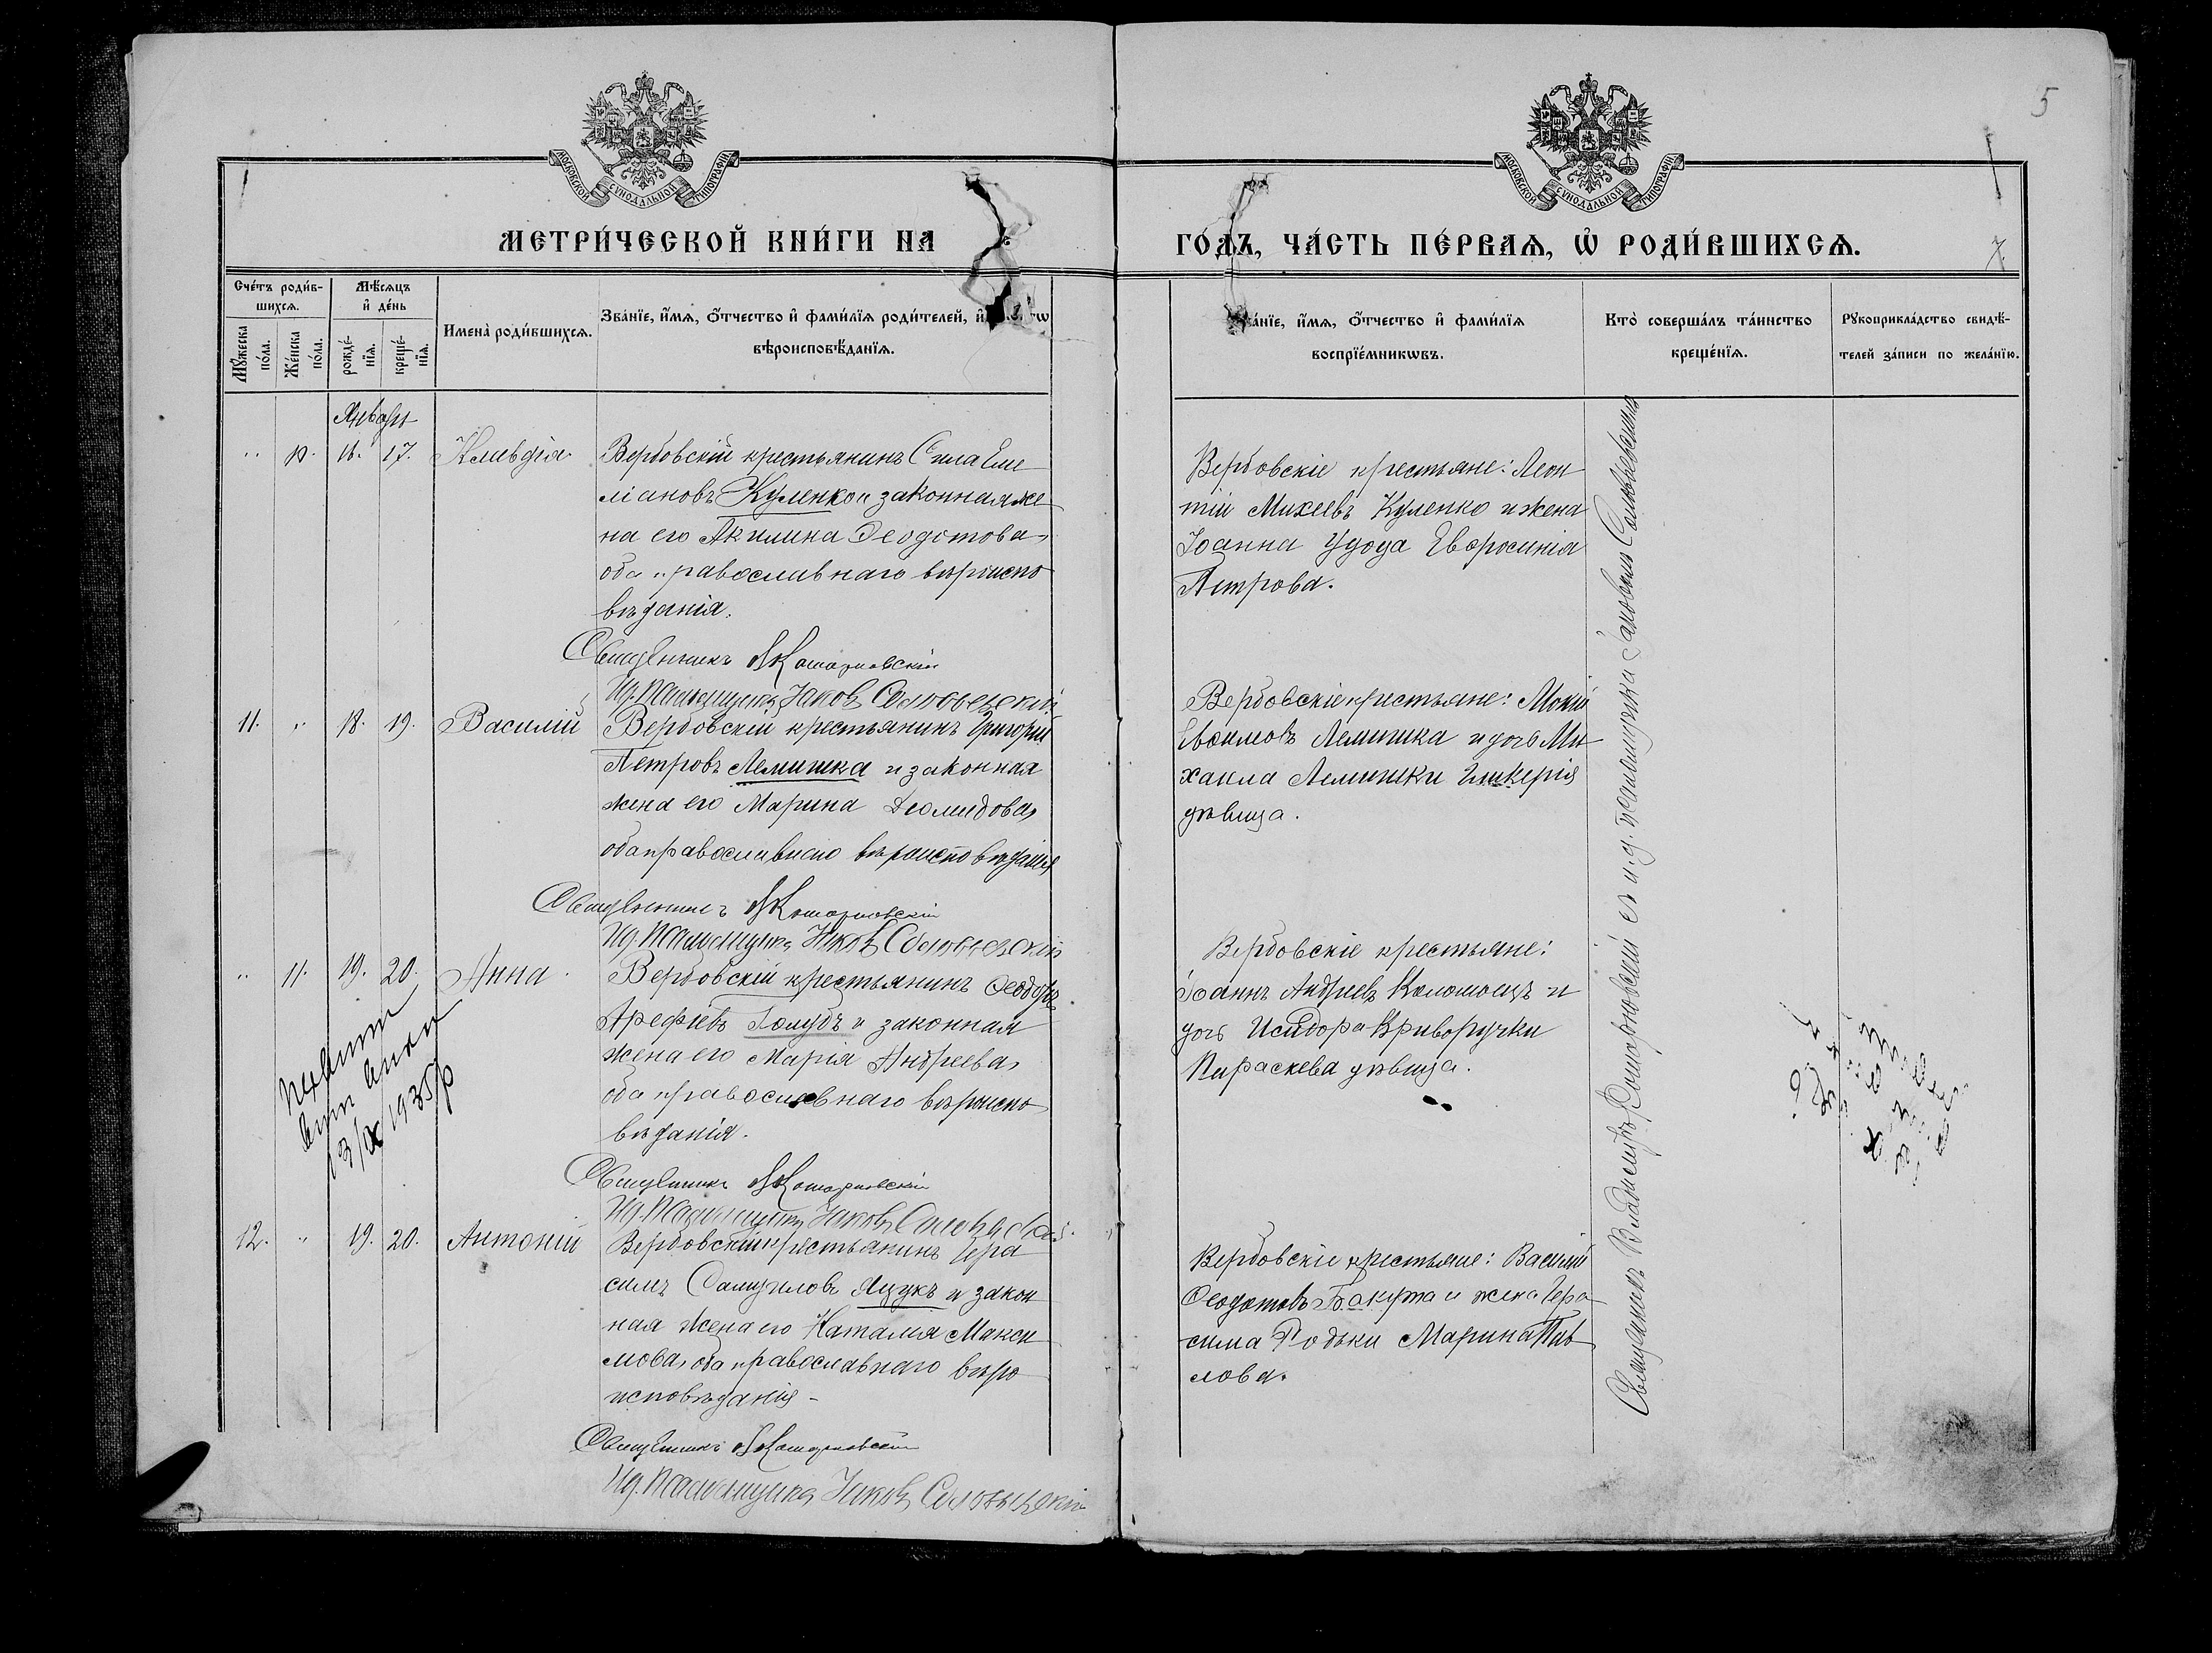 5
МОСКОВСКОЙ СУНОДАЛЬНОЙ ТИПОГРАФІИ
МОСКОВСКОЙ СУНОДАЛЬНОЙ ТИПОГРАФІИ
МЕТРИ́ЧЕСКОЙ КНИ́ГИ НА
ГО́ДЪ, ЧА́СТЬ ПЕ́РВАѦ, Ѡ҆ РОДИ́ВШИХСѦ.
7.
Сче́тъ роди́в-
шихсѧ.
Мꙋ́жеска
по́ла.
Же́нска
по́ла.
Мѣ́сѧцъ
и҆ де́нь
рожде́-
нїѧ.
креще́-
нїѧ.
Имена̀ роди́вшихсѧ.
Зва́нїе, и҆́мѧ, ѻ҆́тчество и҆ фами́лїѧ роди́телей, и҆
вѣроисповѣ́данїѧ.
Зва́нїе, и҆́мѧ, ѻ҆́тчество и҆ фами́лїѧ
воспрїе́мникѡвъ.
Кто̀ соверша́лъ та́инство
креще́нїѧ.
Рꙋкоприкла́дство свидѣ́-
телей за́писи по жела́нїю.
Январь
" 10. 16. 17. Клавдія
Вербовскій крестьянинъ Сила Еме
ліановъ Куленко и законная же
на его Акилина Ѳеодотова,
оба православнаго вѣроиспо
вѣданія.
Священникъ В Комарновскій
Ид. Псаломщика Іаковъ Соловьевскій
Вербовскіе крестьяне: Леон
тій Михеевъ Куленко и жена
Іоанна Удода Евфросинія
Петрова.
11. " 18. 19. Василій
Вербовскій крестьянинъ Григорій
Петровъ Лемишка и законная
жена его Марина Діомидова,
оба православнаго вѣроисповѣданія
Священникъ В Комарновскій
Ид. Псаломщика Іаковъ Соловьевскій
Вербовскіе крестьяне: Мокій
Евѳимовъ Лемишка и дочь Ми
хаила Лемишки Гликерія
дѣвица.
" 11. 19. 20. Анна.
Вербовскій крестьянинъ Ѳеодоръ
Арефіевъ Голубъ и законная
жена его Марія Андреева,
оба православнаго вѣроиспо
вѣданія.
Священникъ В Комарновскій
Ид. Псаломщика Іаковъ Соловьевскій.
Вербовскіе крестьяне:
Іоаннъ Андреевъ Коломоецъ и
дочь Исидора Криворучки
Параскева дѣвица.
1935 р
12. " 19. 20. Антоній
Вербовскій крестьянинъ Гера
симъ Самуиловъ Яцукъ и закон
ная жена его Наталія Макси
мова, оба православнаго вѣро
исповѣданія
Священникъ В Комарновскій
Ид. Псаломщика Іаковъ Соловьевскій
Вербовскіе крестьяне: Василій
Ѳеодотовъ Бакута и жена Гера
сима Родьки Марина Пав
лова.
Священникъ Владиміръ Комарновскій съ и. д. псаломщика Іаковомъ Соловьевскимъ